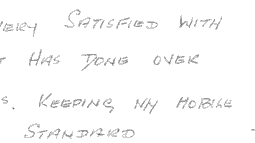 VERY SATISFIED WITH
HAS DONE OVER
S. KEEPING MY MOBILE
STANDARD